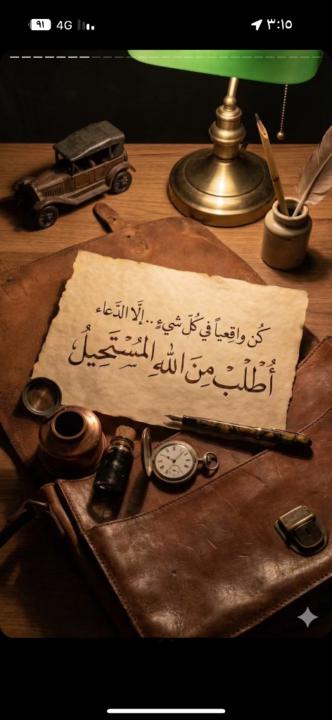 91 4G ٣:١٥
كُن واقِعياً في كُلّ شيءٍ .. إلّا الدَّعاء
أُطلُب مِنَ اللهِ المُسْتَحِيلُ